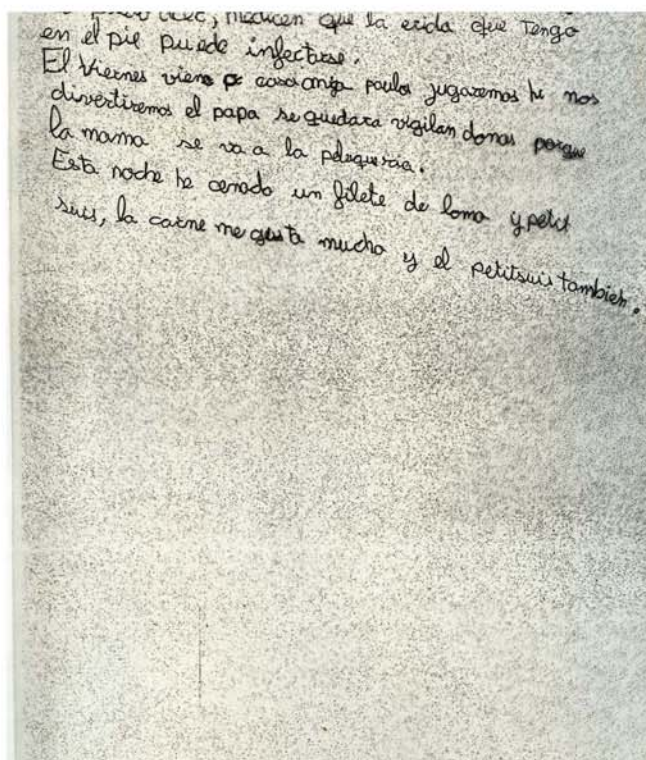 , medicen que la erida que Tengo
en el pie puede infectarse.
El Viernes viene casa paula jugaremos he nos
divertiremos el papa se quedara vigilan donos porque
la mama se va a la peluqueria.
Esta noche he cenado un filete de lomo y petit
suis, la carne me gusta mucho y el petitsuis tambien.